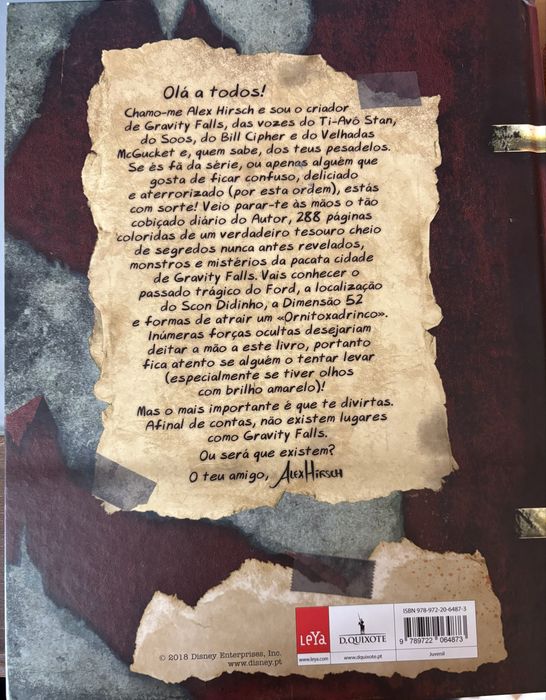 Olá a todos!
Chamo-me Alex Hirsch e sou o criador
de Gravity Falls, das vozes do Ti-Avô Stan,
do Soos, do Bill Cipher e do Velhadas
McGucket e, quem sabe, dos teus pesadelos.
Se és fã da série, ou apenas alguém que
gosta de ficar confuso, deliciado
e aterrorizado (por esta ordem), estás
com sorte! Veio parar-te às mãos o tão
cobiçado diário do Autor, 288 páginas
coloridas de um verdadeiro tesouro cheio
de segredos nunca antes revelados,
monstros e mistérios da pacata cidade
de Gravity Falls. Vais conhecer o
passado trágico do Ford, a localização
do Scon Didinho, a Dimensão 52
e formas de atrair um «Ornitoxadrinco».
Inúmeras forças ocultas desejariam
deitar a mão a este livro, portanto
fica atento se alguém o tentar levar
(especialmente se tiver olhos
com brilho amarelo)!
Mas o mais importante é que te divirtas.
Afinal de contas, não existem lugares
como Gravity Falls.
Ou será que existem?
O teu amigo, ALEX HIRSCH
© 2018 Disney Enterprises, Inc.
www.disney.pt
LEYA
www.leya.com
D.QUIXOTE
www.dquixote.pt
ISBN 978-972-20-6487-3
9 789722 064873
Juvenil